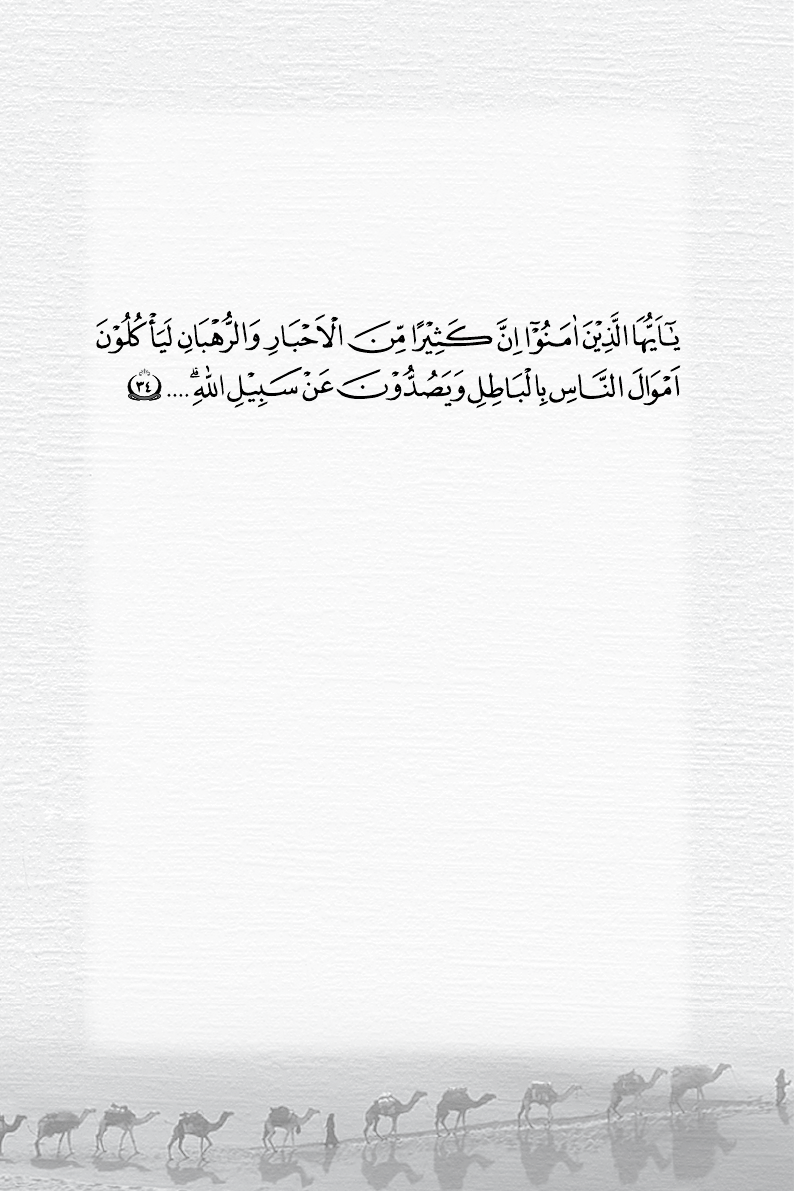 يٰٓاَيُّهَا الَّذِيْنَ اٰمَنُوْٓا اِنَّ كَثِيْرًا مِّنَ الْاَحْبَارِ وَالرُّهْبَانِ لَيَأْكُلُوْنَ
اَمْوَالَ النَّاسِ بِالْبَاطِلِ وَيَصُدُّوْنَ عَنْ سَبِيْلِ اللّٰهِ ۗ .... ٣٤